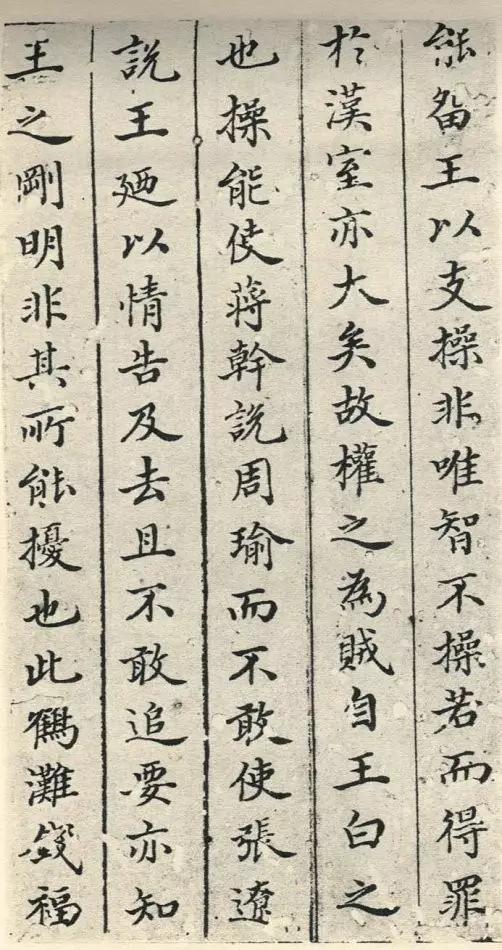 能留王以支操非唯智不操若而得罪
於漢室亦大矣故權之為賊自王白之
也操能使蔣幹說周瑜而不敢使張遼
說王廼以情告及去且不敢追要亦知
王之剛明非其所能擾也此鶴灘錢福